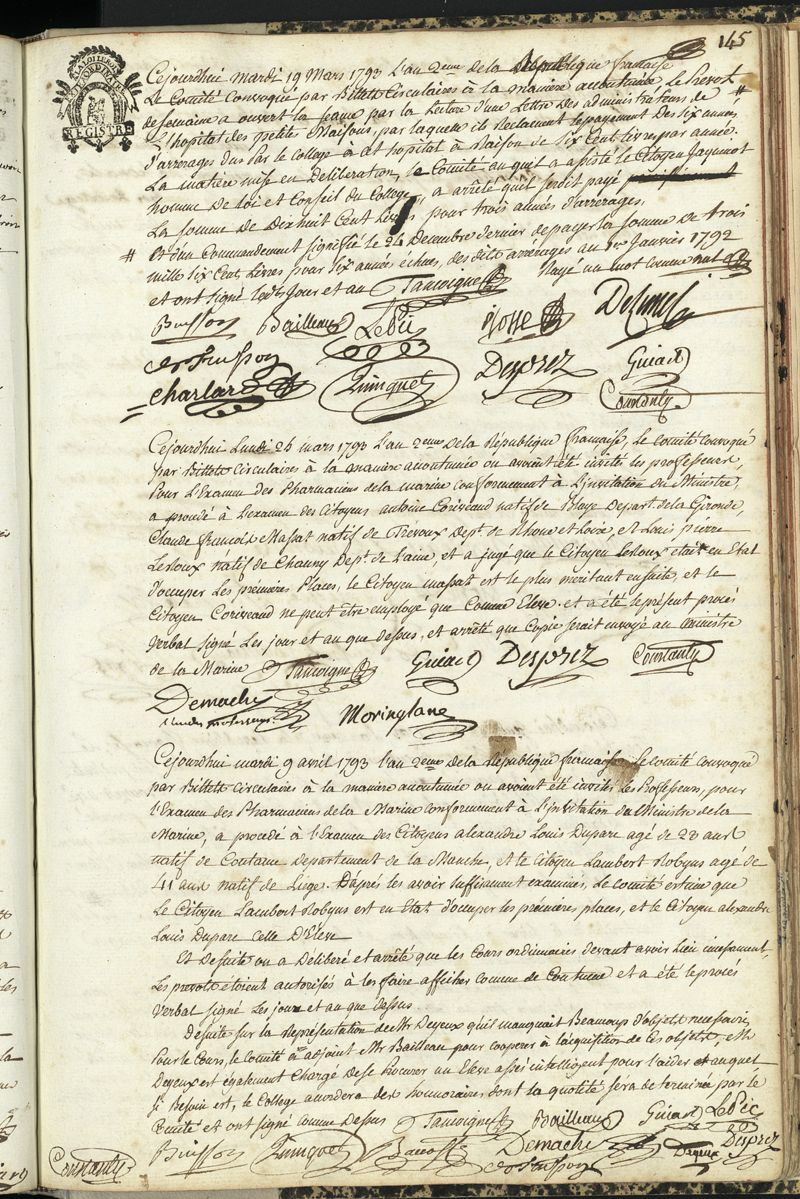 145
LA LOI LE ROI
EXTRAORDINAIRE
REGISTRE
Cejourdhui mardi 19 Mars 1793 L'an 2eme de la République francaise
Le Comité Convoqué par Billets Circulaires à la maniere accoutumée le Prevot
de semaine a ouvert la séance par la lecture d'une Lettre des administrateurs de #
L'hopital des petites Maisons, par laquelle ils Reclament le payement des six années
d'arrerages dus par le College à cet hopital à Raison de Six Cent livres par année.
La matiere mise en Deliberation, le Comité au quel a assisté le Citoyen Jaquinot
homme de loi et Conseil du College, a arrêté quil seroit payé
La somme de Dixhuit Cent Livres pour trois années d'arrerages.
# Et d'un Commandement signifié le 24 Decembre dernier de payer la somme de trois
mille six Cent Livres pour six années échues, des dits arrérages au 1er Janvier 1792
et ont signé lesd. Jour et an Tassoigne Rayé un mot comme nul
Buisson Bailleau LePic Josse Delunel
Charlard Quinquet Desprez Guiard
Constanty
Cejourdhui Lundi 25 mars 1793 L'an 2eme De la République francaise, Le Comité Convoqué
par Billets Circulaires à la maniere accoutumée ou avoient été invités les professeurs,
Pour L'Examen des Pharmaciens de la marine conformement à L'invitation du Ministre,
a procédé à L'examen des Citoyens antoine Coriveaud natif de Blaye Depart. de la Gironde,
Claude francois Massat natif de Trévoux Dept. de Rhone et Loire, et Louis pierre
Lerloux natif de Chauny Dept. de L'aine, et a jugé que le Citoyen Lerloux était en Etat
d'occuper Les prémieres Places, le Citoyen massat est le plus méritant ensuite, et le
Citoyen Coriveaud ne peut être employé que Comme Eleve. et a été le présent procés
Verbal signé Les jour et an que Dessus, et arrêté que Copie serait envoyé au Ministre
de la Marine Tassoigne Guiard Desprez Constanty
Demachy
l'un des professeurs Moringlane
Cejourdhui mardi 9 avril 1793 l'an 2eme de la République francaise Le Comité Convoqué
par Billets Circulaires à la maniere accoutumée ou avoient été invités Les Professeurs, pour
l'Examen des Pharmaciens de la Marine conformement à L'invitation du Ministre de la
Marine, a procédé à l'Examen des Citoyens alexandre Louis Duparc agé de 23 ans
natif de Coutance Departement de la Manche, et le Citoyen Lambert Robyns agé de
41 ans natif de Liege. D'aprés les avoir suffisament examinés, Le Comité estime que
Le Citoyen Lambert Robyns est en Etat d'occuper les prémieres places, et le Citoyen alexandre
Louis Duparc Celle D'Eleve
Et De suite on a Déliberé et arrêté que les Cours ordinaires devant avoir Lieu incessament,
Les prevots étoient autorisés à les faire afficher comme de Coutume et a été le procés
Verbal signé Les jour et an que dessus.
De suite sur la représentation de Mr Deyeux qu'il manquait Beaucoup d'objets necessaires
Pour le Cours, le Comité a adjoint Mr Bailleau pour cooperer à l'acquisition de Ces objets, Mr
Deyeux est également Chargé de se procurer un Eleve assés intelligent pour l'aider et auquel
si Besoin est, le College accordera des honoraires dont la quotité sera determinée par le
Comité et ont signé comme Dessus Tassoigne Bailleau Guiard LePic
Buisson Quinquet Demachy Deyeux Desprez
Constanty